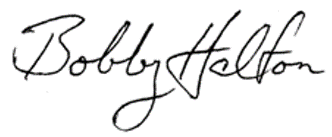 Bobby Halton